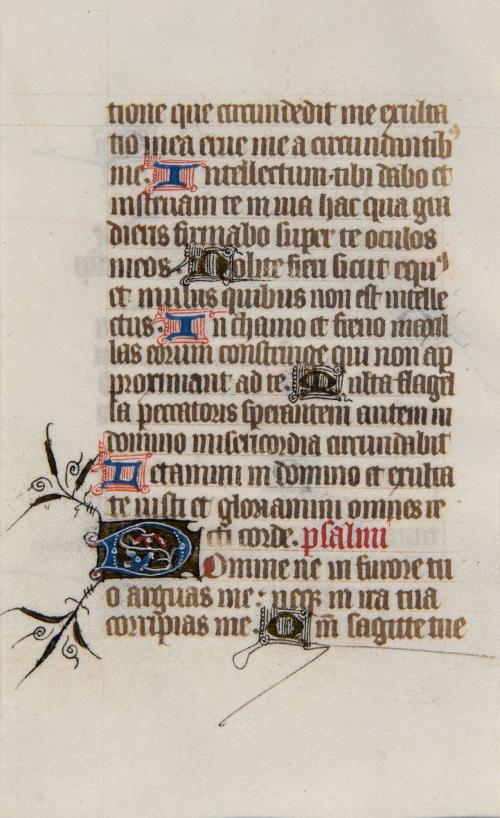 tione que circundedit me exulta
tio mea erue me a circundantib⁹
me. Intellectum tibi dabo et
instruam te in uia hac qua gra
dieris firmabo super te oculos
meos. Nolite fieri sicut equ⁹
et mulus quibus non est intelle
ctus. In chamo et freno maxil
las eorum constringe qui non ap
proximant ad te. Multa flagel
la peccatoris sperantem autem in
domino misericordia circundabit
Letamini in domino et exulta
te iusti et gloriamini omnes re
cti corde. psalmi
Domine ne in furore tu
o arguas me: neqꝫ in ira tua
corripias me. Qm̄ sagitte tue